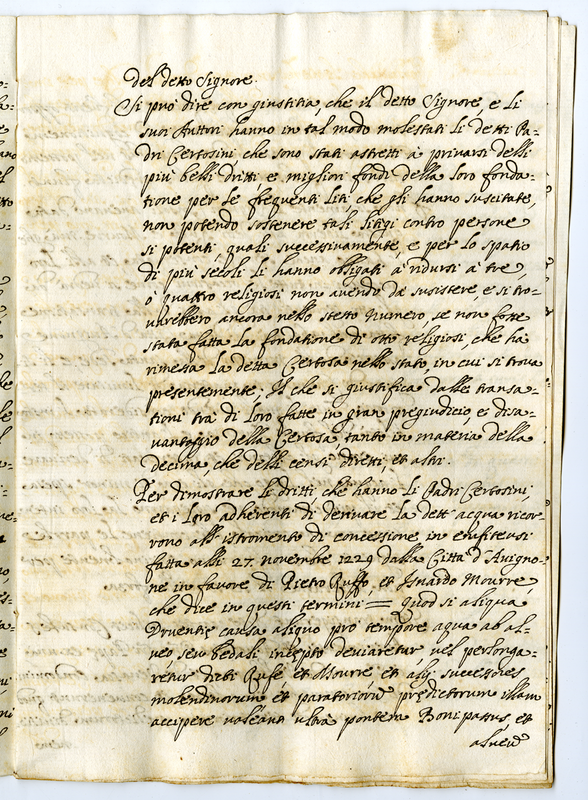 del detto Signore.
Si può dire con giustitia, che il detto Signore, e li
suoi Auttori hanno in tal modo molestati li detti Pa-
dri Certosini che sono stati astretti à privarsi delli
più belli dritti, e migliori fondi della loro fonda-
tione per le frequenti liti, che gli hanno suscitate,
non potendo sostenere tali litigi contro persone
si potenti, quali successivamente, e per lo spatio
di più secoli li hanno obligati à ridursi à tre,
ò quattro religiosi non avendo da susistere, e si tro-
varebbero ancora nello stesso numero, se non fosse
stata fatta la fondatione di otto religiosi, che ha
rimessa la detta Certosa nello stato, in cui si trova
presentemente; Il che si giustifica dalle transa-
tioni trà di loro fatte in gran pregiudicio, e disa-
vantaggio della Certosa, tanto in materia della
decima, che delli censi diretti, et altri.
Per dimostrare li dritti, che hanno li Padri Certosini,
et i loro adherenti di derivare la dett' acqua ricor-
rono all' istromento di concessione in enfiteusi
fatta alli 27. novembre 1229 dalla Città d'Avigno-
ne in favore di Pietro Ruffo, et Isnardo Mourre,
che dice in questi termini = quod si aliqua
Druentię causa aliquo pro tempore aqua ab al-
veo, seu bedali incępto deviaretur, vel perlonga-
retur dicti Rufe, et Mourre, et alij successores
molendinorum et paratoriorũ prędictorum illam
accipere valeant ultra pontem Boni passus, et
alveũ